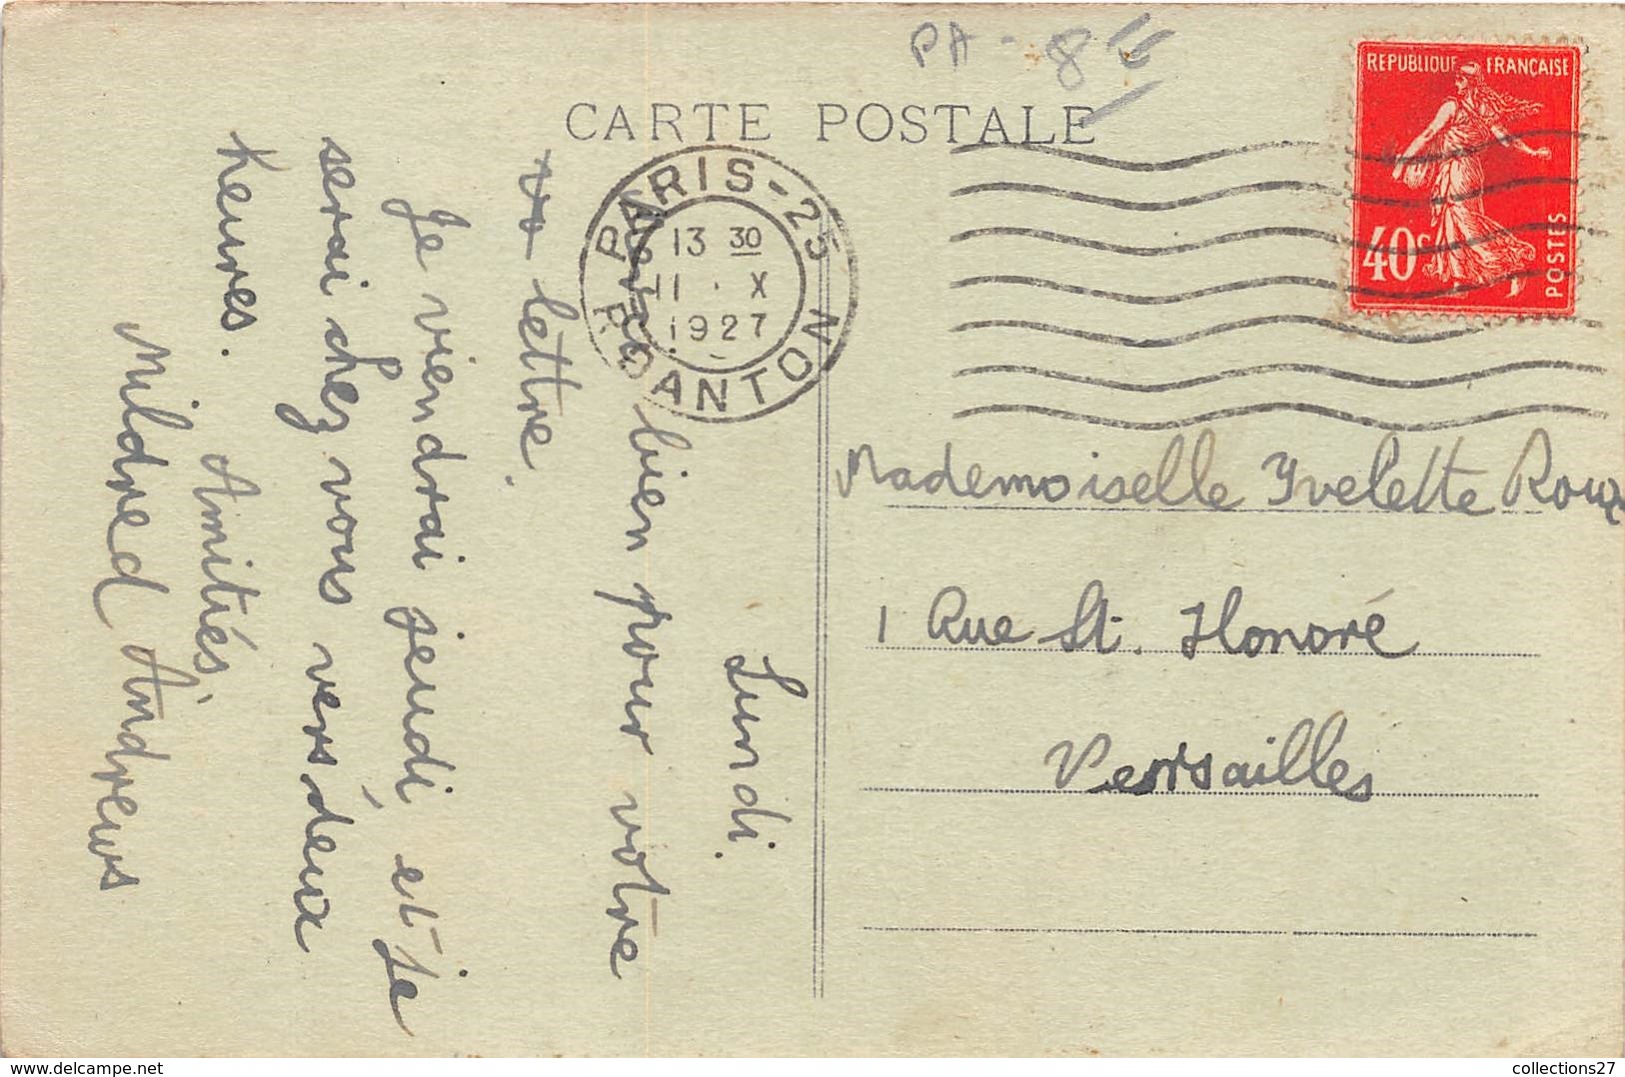 PA - 8
CARTE POSTALE
REPUBLIQUE FRANÇAISE
40c
POSTES
PARIS-25
13 30
11 · X
1927
R. DANTON
Lundi.
Merci bien pour votre
vo lettre.
Je viendrai jeudi et je
serai chez vous vers deux
heures.
Amitiés,
Mildred Andrews
Mademoiselle Yvelette Roux
1 Rue St. Honoré
Versailles
delcampe.net
collections27